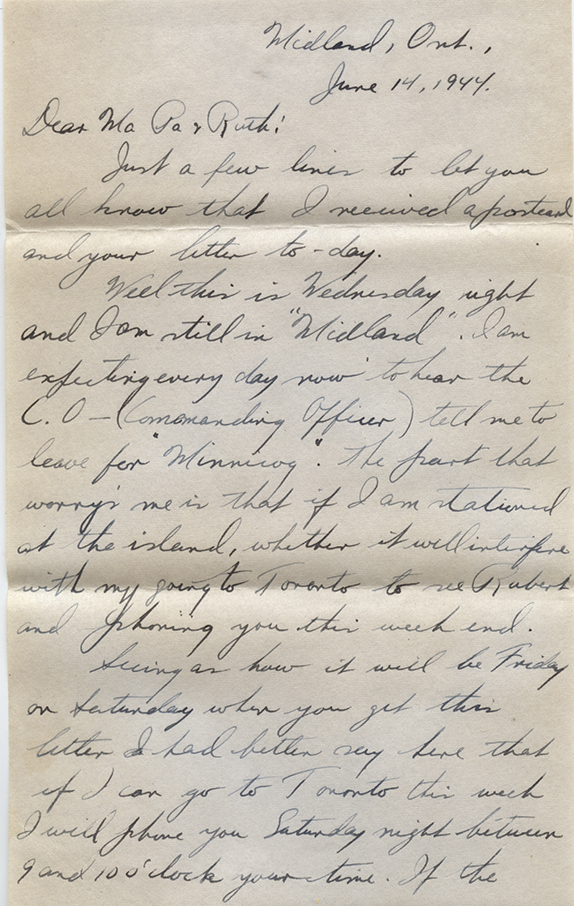 Midland, Ont.,
June 14, 1944.
Dear Ma Pa & Ruth:
Just a few lines to let you
all know that I received a postcard
and your letter to-day.
Well this is Wednesday night
and I am still in "Midland". I am
expecting every day now to hear the
C.O - (Commanding Officer) tell me to
leave for "Minnicog". The part that
worry's me is that if I am stationed
at the island, whether it will interfere
with my going to Toronto to see Robert
and phoning you this week end.
Seeing as how it will be Friday
or Saturday when you get this
letter I had better say here that
if I can go to Toronto this week
I will phone you Saturday night between
9 and 10 o'clock your time. If the